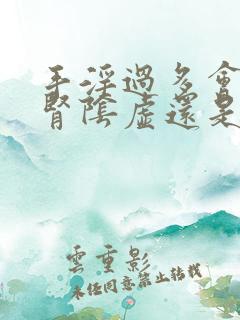 手淫過多會
腎陰虛還是
雲重影
未經同意禁止轉載